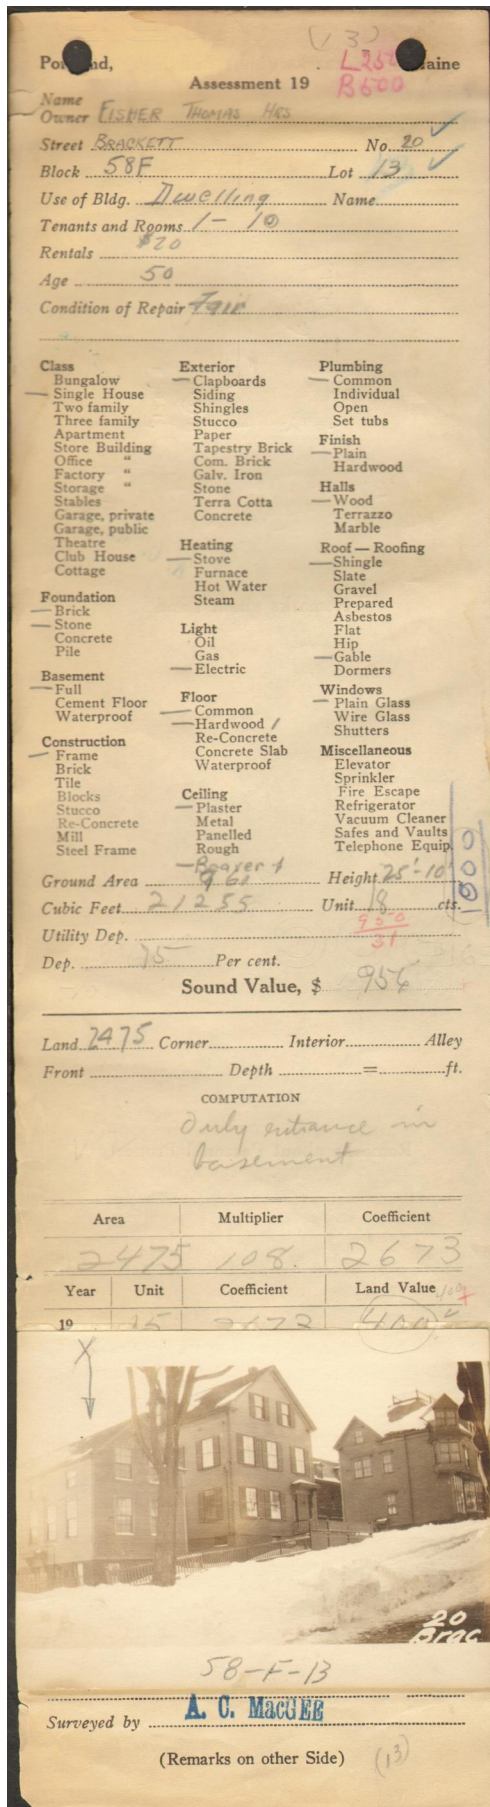 (13)
Portland, Maine
L250
Assessment 19
B600
Name
Owner FISHER THOMAS HRS
Street BRACKETT No. 20
Block 58F Lot 13
Use of Bldg. Dwelling Name
Tenants and Rooms 1 - 10
Rentals $20
Age 50
Condition of Repair Fair
Class
Bungalow
Single House
Two family
Three family
Apartment
Store Building
Office "
Factory "
Storage "
Stables
Garage, private
Garage, public
Theatre
Club House
Cottage
Foundation
Brick
Stone
Concrete
Pile
Basement
Full
Cement Floor
Waterproof
Construction
Frame
Brick
Tile
Blocks
Stucco
Re-Concrete
Mill
Steel Frame
Exterior
Clapboards
Siding
Shingles
Stucco
Paper
Tapestry Brick
Com. Brick
Galv. Iron
Stone
Terra Cotta
Concrete
Heating
Stove
Furnace
Hot Water
Steam
Light
Oil
Gas
Electric
Floor
Common
Hardwood /
Re-Concrete
Concrete Slab
Waterproof
Ceiling
Plaster
Metal
Panelled
Rough
Plumbing
Common
Individual
Open
Set tubs
Finish
Plain
Hardwood
Halls
Wood
Terrazzo
Marble
Roof — Roofing
Shingle
Slate
Gravel
Prepared
Asbestos
Flat
Hip
Gable
Dormers
Windows
Plain Glass
Wire Glass
Shutters
Miscellaneous
Elevator
Sprinkler
Fire Escape
Refrigerator
Vacuum Cleaner
Safes and Vaults
Telephone Equip.
1000
Beaver
Ground Area 961 Height 25'-10'
Cubic Feet 21255 Unit 18 cts.
950
31
Utility Dep.
Dep. 75 Per cent.
Sound Value, $ 956
Land 2475 Corner Interior Alley
Front Depth = ft.
COMPUTATION
Only entrance in
basement
Area Multiplier Coefficient
2475 108. 2673
Year Unit Coefficient Land Value
19 15 2673 400
X
20
Brac
58-F-13
A. C. MacGEE
Surveyed by
(Remarks on other Side) (13)